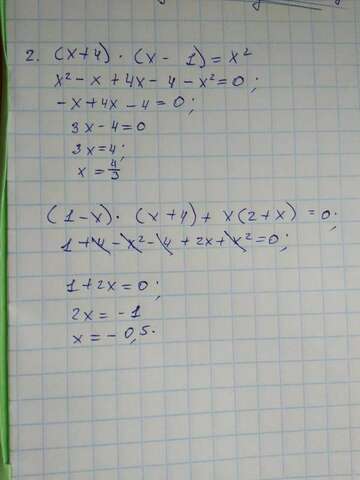 2. (x+4) · (x - 1) = x²
x² - x + 4x - 4 - x² = 0;
-x + 4x - 4 = 0;
3x - 4 = 0
3x = 4;
x = 4/3
(1-x) · (x+4) + x(2+x) = 0;
1 + 4 - x² - 4 + 2x + x² = 0;
1 + 2x = 0;
2x = -1
x = -0,5.